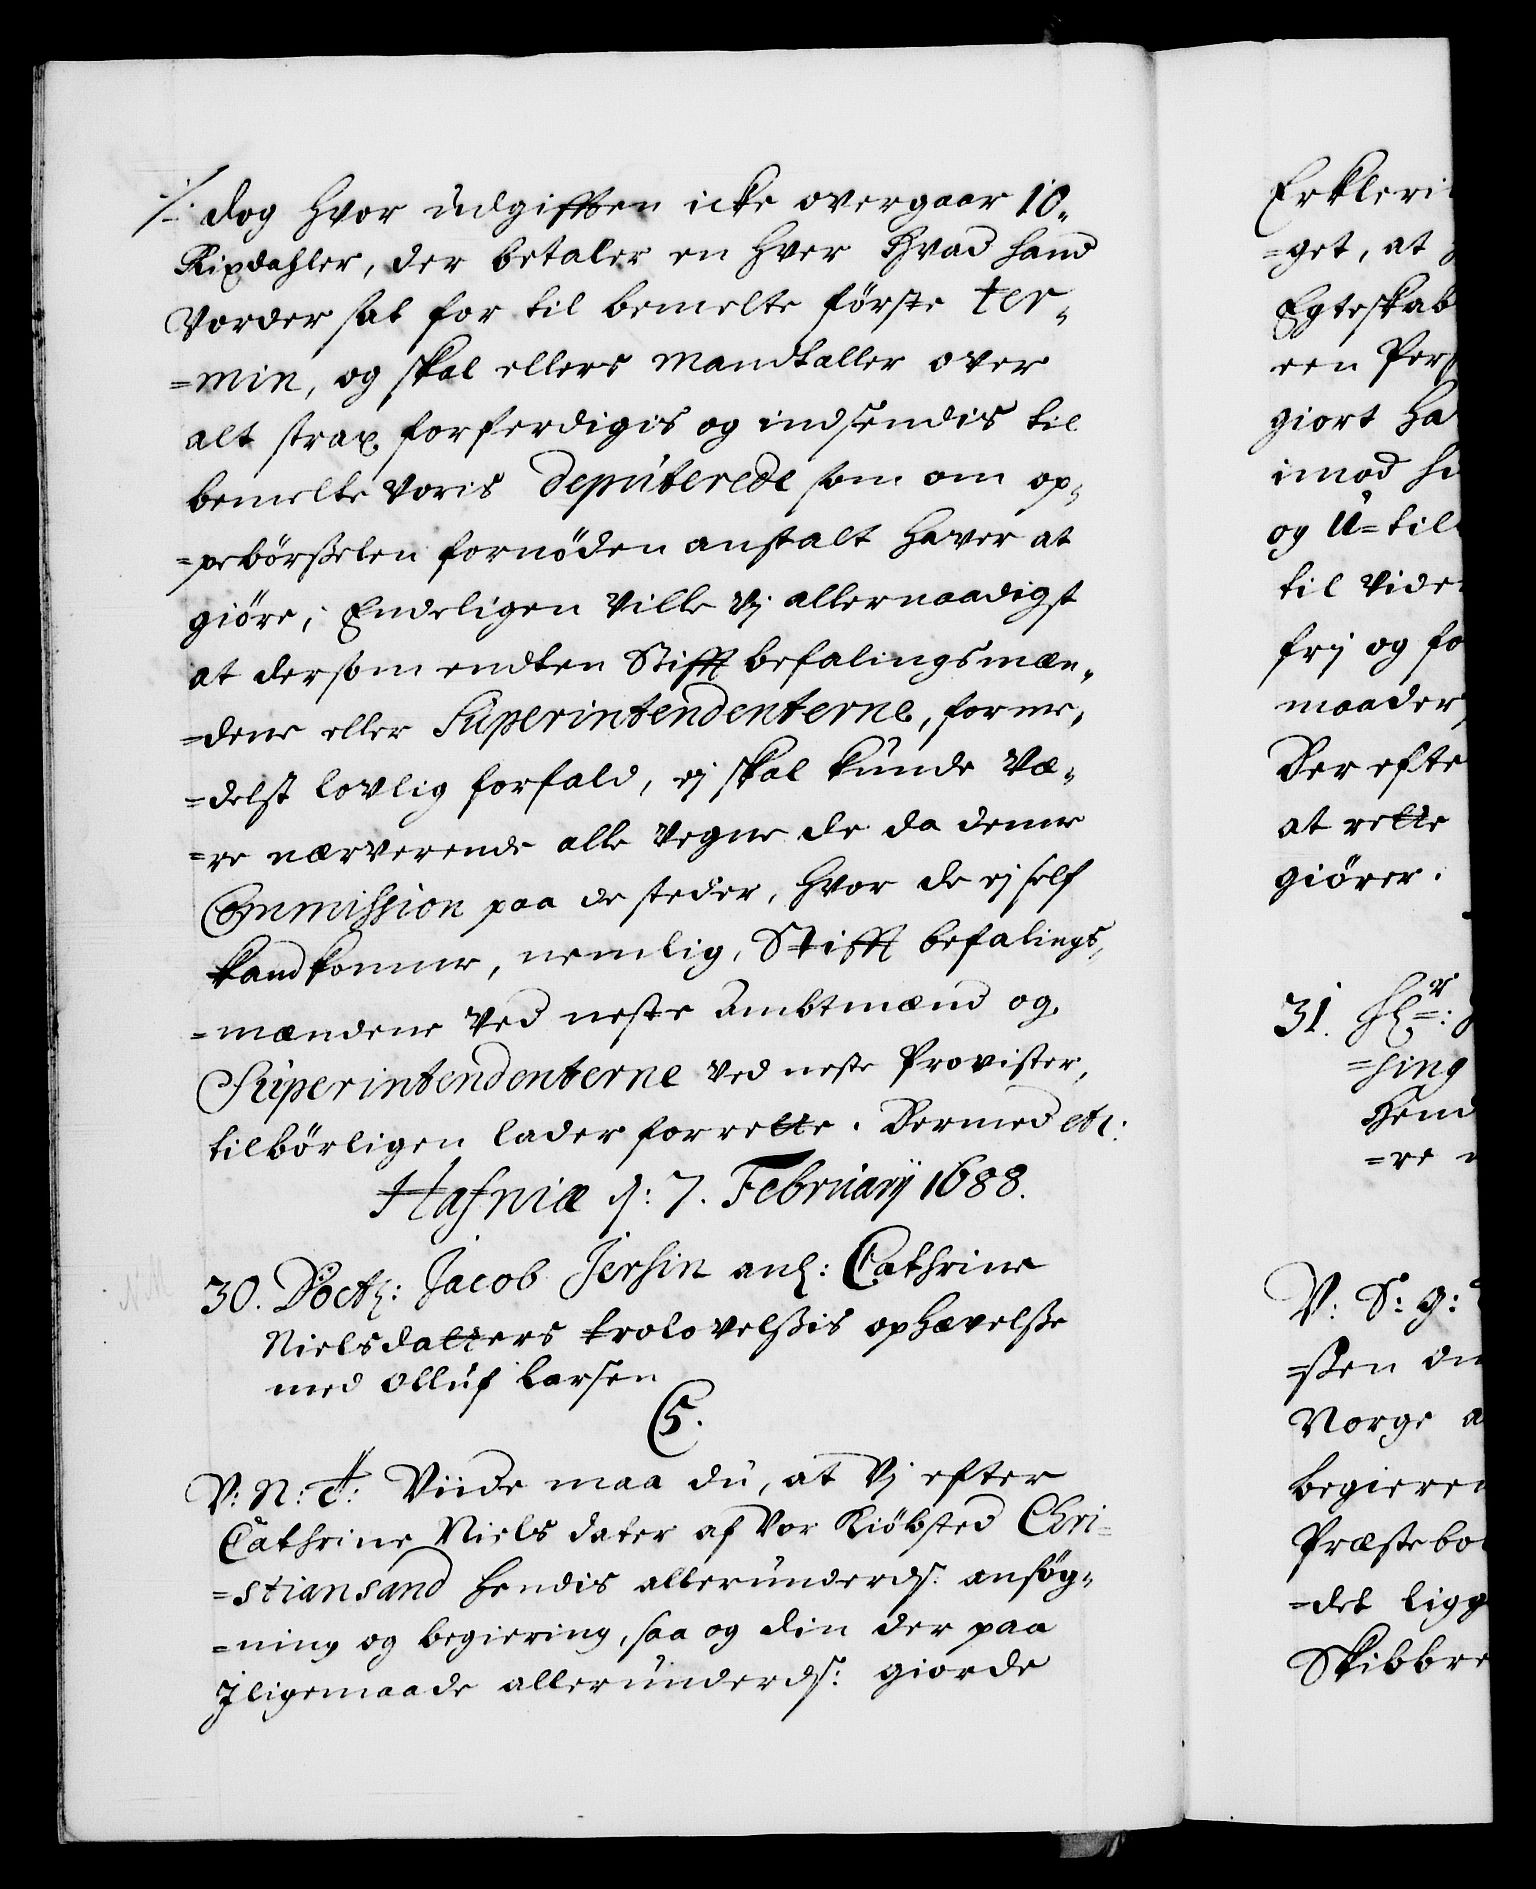 ⁒ dog hvor udgifften icke overgaar 10.
Rixdahler, der betaler en hver hvad hand
vorder sat for til bemelte förste ter-
=min, og skal ellers Mandtaller over
alt strax forferdigis og indsendis til
bemelte voris deputerede som om op-
=pebörsselen fornöden anstalt haver at
giöre; Endeligen ville vj allernaadigst
at dersom endten Stifft befalingsmæn-
=dene eller Superintendenterne, forme-
=delst lovlig forfald, ej skal kunde væ-
=re nærverende alle vegne de da denne
Commission paa de steder, hvor de ej self
kand komme, nemlig, Stifft befalings-
=mændene ved neste Ambtmænd og
Superintendenterne ved neste Provister,
tilbörligen lader forrette. Dermed etc:
Hafniæ d: 7. February 1688.
30. Doct: Jacob Jersin anl: Cathrine
Nielsdatters trolovelssis ophævelsse
med Olluf Larsen
C5.
V: N: T: Viide maa du, at Vj efter
Cathrine Niels dater af vor Kiöbsted Chri-
=stiansand hendis allerunderds: ansög-
=ning og begiering, saa og din der paa
Iligemaade allerunderds: giorde
Erkleri
=get, at
Egteskab
een Pers
giort ha
imod hi
og U=til
til vide
frj og fo
maader
Der efte
at rette
giörer.
31. Hr:
=sing
Hend
=re
V: S: G:
=ssen
Norge a
begieren
Præstebo
=det ligg
Skibbre